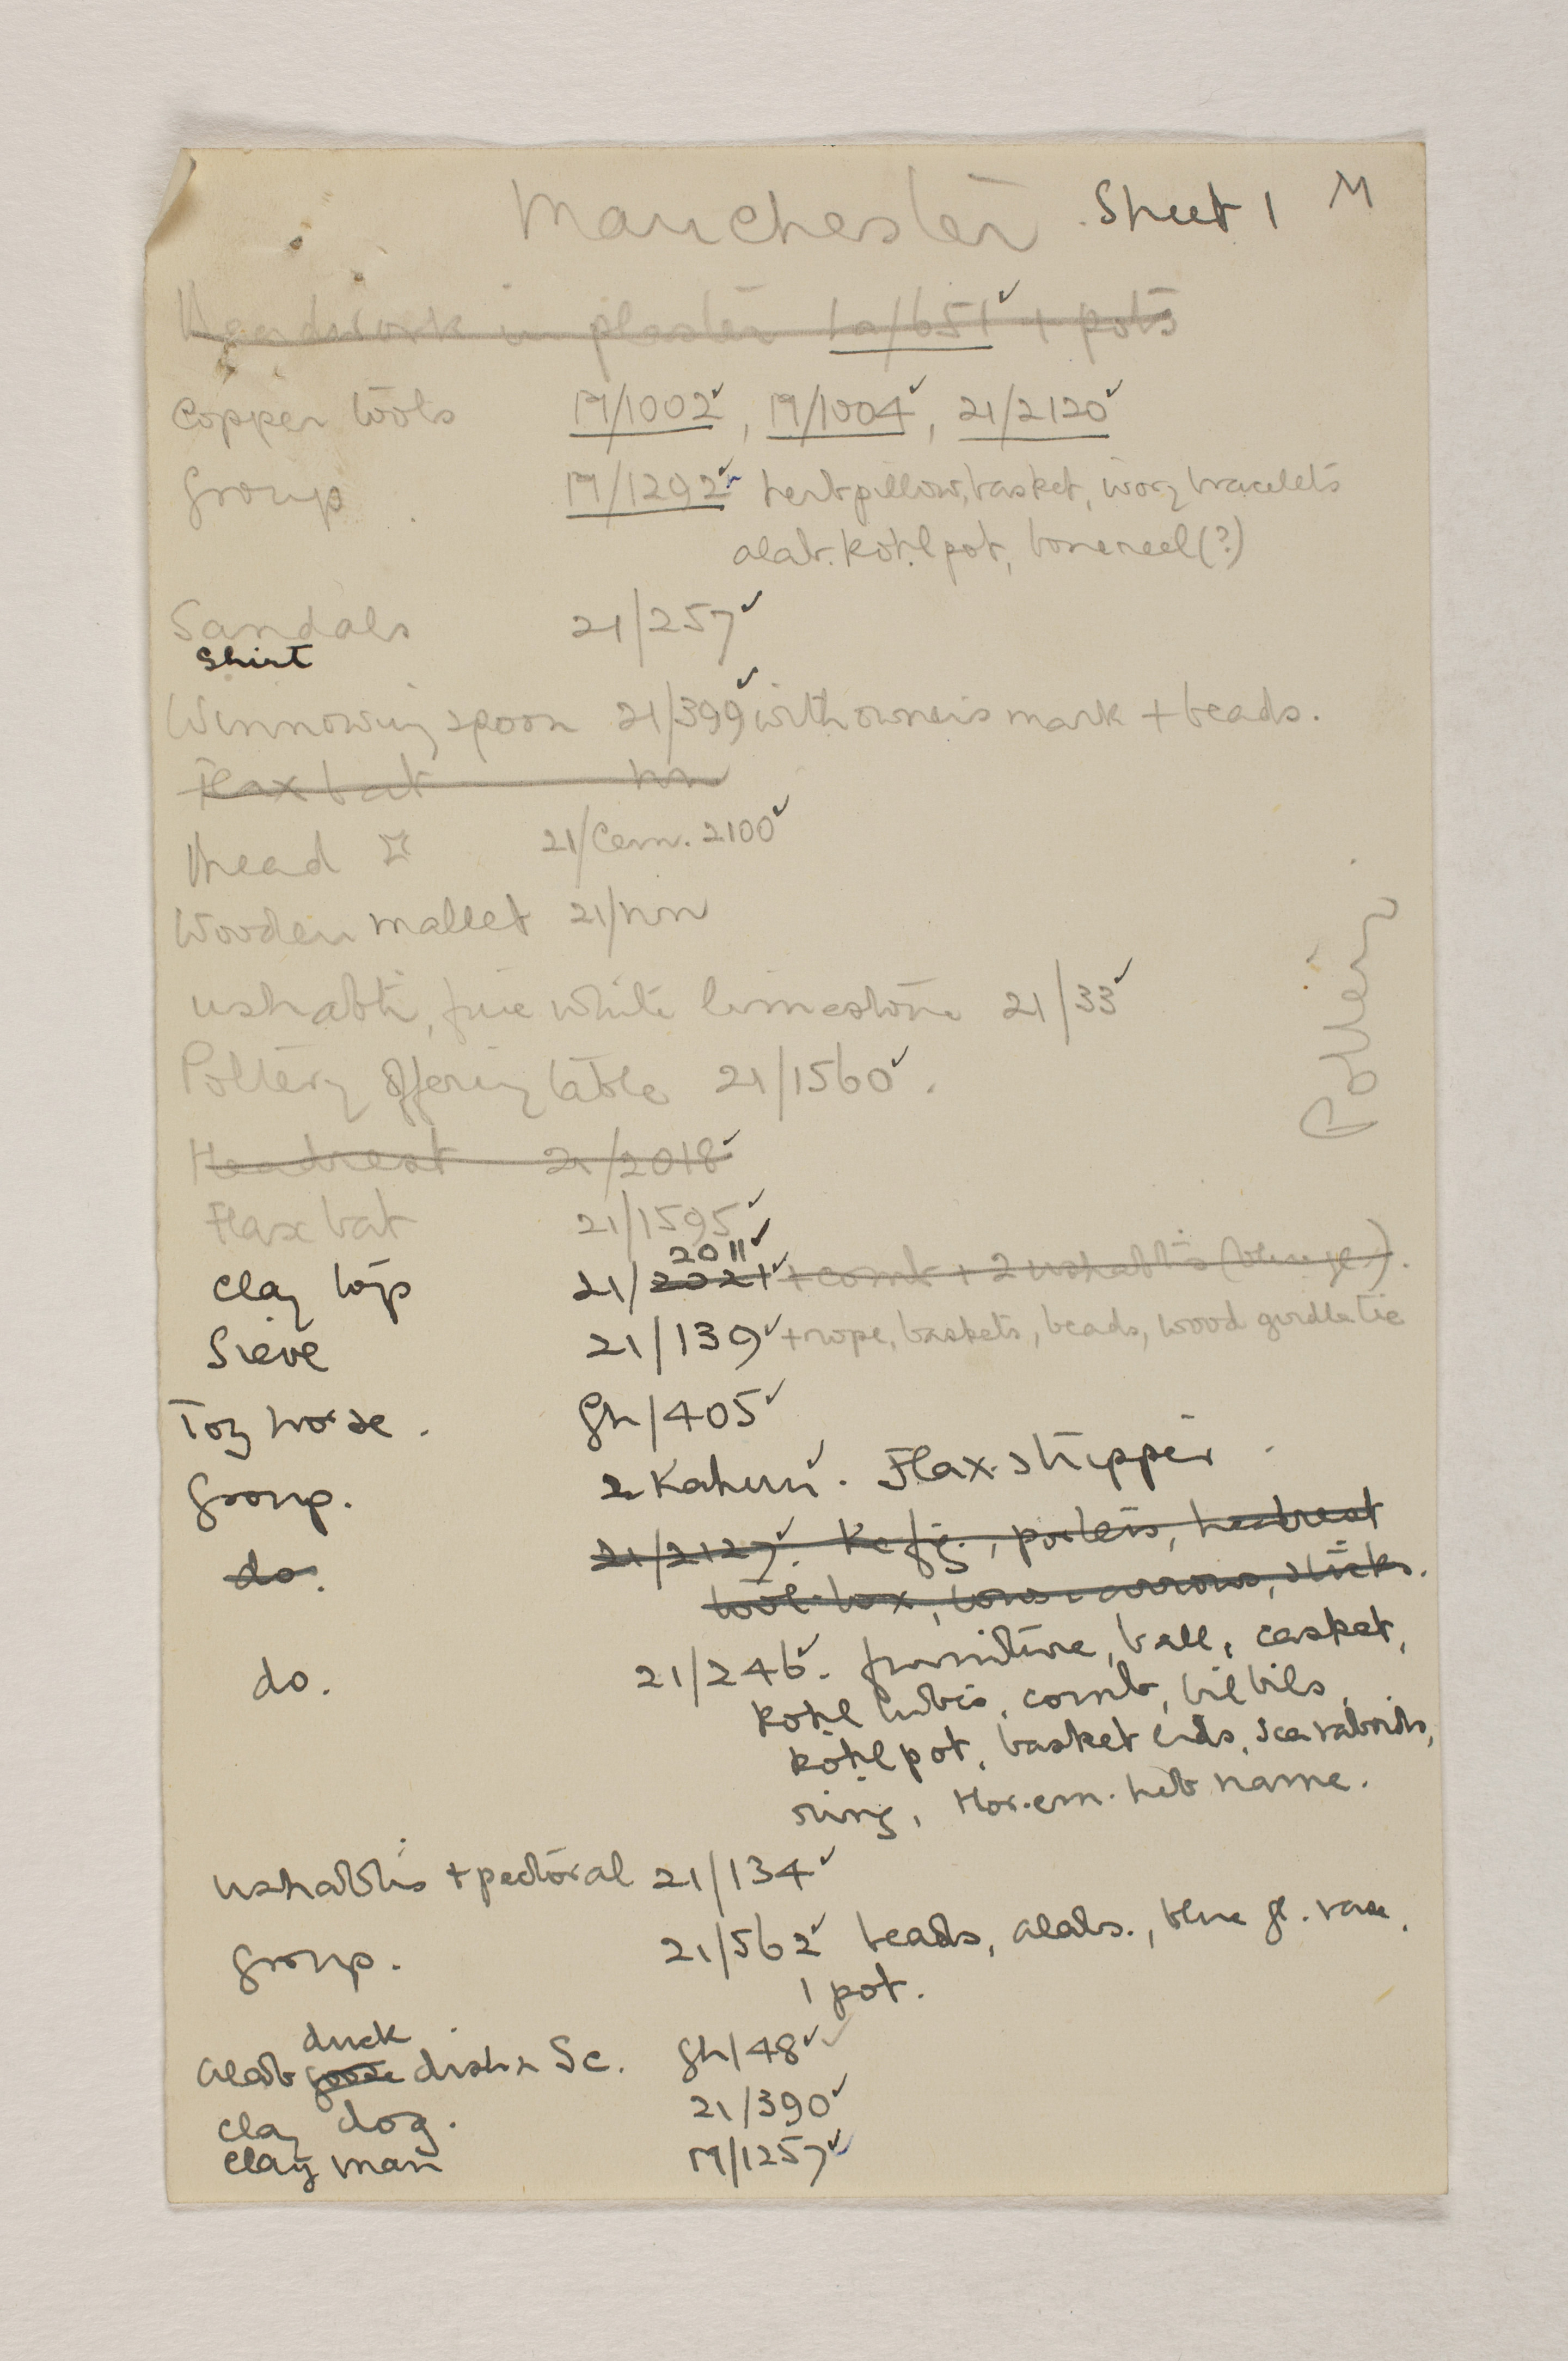 Manchester. Sheet 1 M
Beadwork in plaster 1a/651 ✓ + pots
Copper tools M/1002 ✓, M/1004 ✓, 21/2120 ✓
Group. M/1292 ✓ herb pillow, basket, ivory bracelets
alab. kohl pot, bone reel (?)
Sandals 21/257 ✓
Shirt
Winnowing spoon 21/399 ✓ with owner's mark + beads.
Flax bat nn
thread 21/Cem. 2100 ✓
Wooden mallet 21/nn
ushabti, fine white limestone 21/33 ✓
Pottery offering table 21/1560 ✓.
Headrest 21/2018 ✓
Flax bat 21/1595 ✓
2011 ✓
Clay top 21/2021 ✓ + comb + 2 ushabtis (blue gl.).
Sieve 21/139 ✓ + rope, baskets, beads, wood girdle tie
Toy horse. Gh/405 ✓
Group. 2 Kahun ✓. Flax stripper.
do. 21/2127 ✓. headrest
tool-box, bows + arrows, sticks.
do. 21/246 ✓. furniture, ball, casket,
kohl tubes, comb, bilbils,
kohl pot, basket lids, scaraboids,
ring, Hor.em.heb name.
ushabtis + pectoral 21/134 ✓
Group. 21/562 ✓ beads, alabs., blue gl. vase,
1 pot.
duck
Alab goose dish + Sc. Gh/48 ✓✓
Clay dog. 21/390 ✓
Clay man M/1257 ✓
Pottery